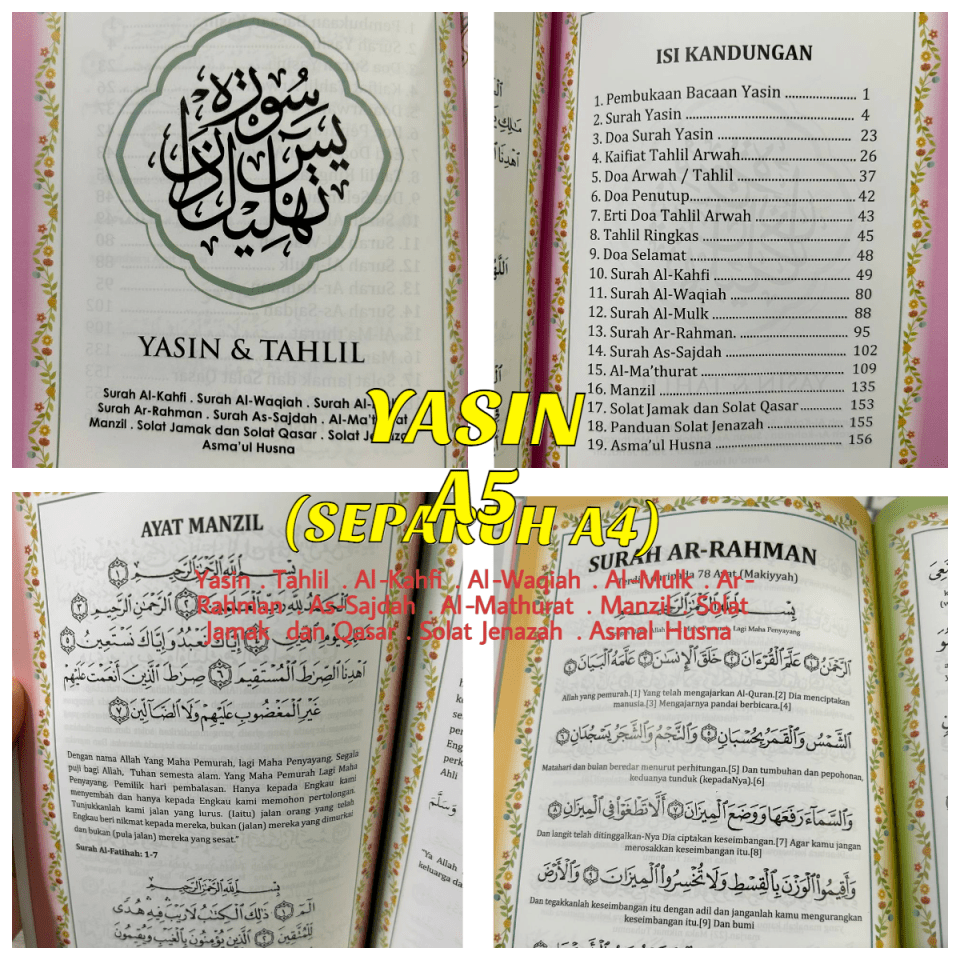 سورة
يس
تهليل دان
YASIN & TAHLIL
Surah Al-Kahfi . Surah Al-Waqiah . Surah Al-
Surah Ar-Rahman . Surah As-Sajdah . Al-Ma'thurat .
Manzil . Solat Jamak dan Solat Qasar . Solat Jenazah
Asma'ul Husna
ISI KANDUNGAN
1. Pembukaan Bacaan Yasin .................. 1
2. Surah Yasin .................................... 4
3. Doa Surah Yasin .............................. 23
4. Kaifiat Tahlil Arwah......................... 26
5. Doa Arwah / Tahlil ........................... 37
6. Doa Penutup.................................... 42
7. Erti Doa Tahlil Arwah ....................... 43
8. Tahlil Ringkas ................................. 45
9. Doa Selamat .................................... 48
10. Surah Al-Kahfi ................................ 49
11. Surah Al-Waqiah ............................. 80
12. Surah Al-Mulk ................................ 88
13. Surah Ar-Rahman. ........................... 95
14. Surah As-Sajdah .............................. 102
15. Al-Ma'thurat ................................... 109
16. Manzil ........................................... 135
17. Solat Jamak dan Solat Qasar............... 153
18. Panduan Solat Jenazah ..................... 155
19. Asma'ul Husna ................................ 156
YASIN
A5
(SEPARUH A4)
Yasin . Tahlil . Al-Kahfi . Al-Waqiah . Al-Mulk . Ar-
Rahman . As-Sajdah . Al-Mathurat . Manzil . Solat
Jamak dan Qasar . Solat Jenazah . Asmal Husna
AYAT MANZIL
بِسْمِ اللَّهِ الرَّحْمَٰنِ الرَّحِيمِ ١
الْحَمْدُ لِلَّهِ رَبِّ ٢ الرَّحْمَٰنِ الرَّحِيمِ ٣
يَوْمِ الدِّينِ ٤ إِيَّاكَ نَعْبُدُ وَإِيَّاكَ نَسْتَعِينُ ٥
اهْدِنَا الصِّرَاطَ الْمُسْتَقِيمَ ٦ صِرَاطَ الَّذِينَ أَنْعَمْتَ عَلَيْهِمْ
غَيْرِ الْمَغْضُوبِ عَلَيْهِمْ وَلَا الضَّالِّينَ ٧
Dengan nama Allah Yang Maha Pemurah, lagi Maha Penyayang. Segala
puji bagi Allah, Tuhan semesta alam. Yang Maha Pemurah Lagi Maha
Penyayang. Pemilik hari pembalasan. Hanya kepada Engkau kami
menyembah dan hanya kepada Engkau kami memohon pertolongan.
Tunjukkanlah kami jalan yang lurus. (Iaitu) jalan orang yang telah
Engkau beri nikmat kepada mereka, bukan (jalan) mereka yang dimurkai
dan bukan (pula jalan) mereka yang sesat."
Surah Al-Fatihah: 1-7
بِسْمِ اللَّهِ الرَّحْمَٰنِ الرَّحِيمِ
الٓمٓ ١ ذَٰلِكَ الْكِتَابُ لَا رَيْبَ فِيهِ هُدًى
لِّلْمُتَّقِينَ ٢ الَّذِينَ يُؤْمِنُونَ بِالْغَيْبِ وَيُقِيمُونَ
Ahli
وَسَلَّمَ
"Ya Allah
keluarga da
SURAH AR-RAHMAN
78 Ayat (Makiyyah)
بِسْمِ اللَّهِ الرَّحْمَٰنِ الرَّحِيمِ
Allah Yang Maha Pemurah Lagi Maha Penyayang
الرَّحْمَٰنُ ١ عَلَّمَ الْقُرْءَانَ ٢ خَلَقَ الْإِنسَانَ ٣ عَلَّمَهُ الْبَيَانَ ٤
Allah yang pemurah.[1] Yang telah mengajarkan Al-Quran.[2] Dia menciptakan
manusia.[3] Mengajarnya pandai berbicara.[4]
الشَّمْسُ وَالْقَمَرُ بِحُسْبَانٍ ٥ وَالنَّجْمُ وَالشَّجَرُ يَسْجُدَانِ ٦
Matahari dan bulan beredar menurut perhitungan.[5] Dan tumbuhan dan pepohonan,
keduanya tunduk (kepadaNya).[6]
وَالسَّمَاءَ رَفَعَهَا وَوَضَعَ الْمِيزَانَ ٧ أَلَّا تَطْغَوْا فِي الْمِيزَانِ ٨
Dan langit telah ditinggalkan-Nya Dia ciptakan keseimbangan.[7] Agar kamu jangan
merosakkan keseimbangan itu.[8]
وَأَقِيمُوا الْوَزْنَ بِالْقِسْطِ وَلَا تُخْسِرُوا الْمِيزَانَ ٩ وَالْأَرْضَ
Dan tegakkanlah keseimbangan itu dengan adil dan janganlah kamu mengurangkan
keseimbangan itu.[9] Dan bumi